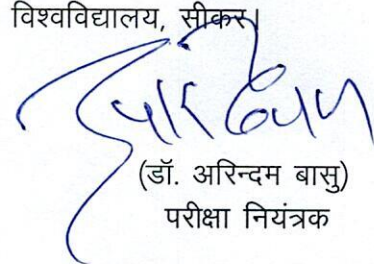 विश्वविद्यालय, सीकर।
(डॉ. अरिन्दम बासु)
परीक्षा नियंत्रक